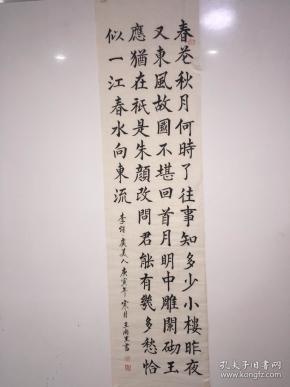 春花秋月何時了往事知多少小樓昨夜
又東風故國不堪回首月明中雕闌砌玉
應猶在祇是朱顏改問君能有幾多愁恰
似一江春水向東流
李煜虞美人庚寅年寒月王尚里書
孔夫子旧书网